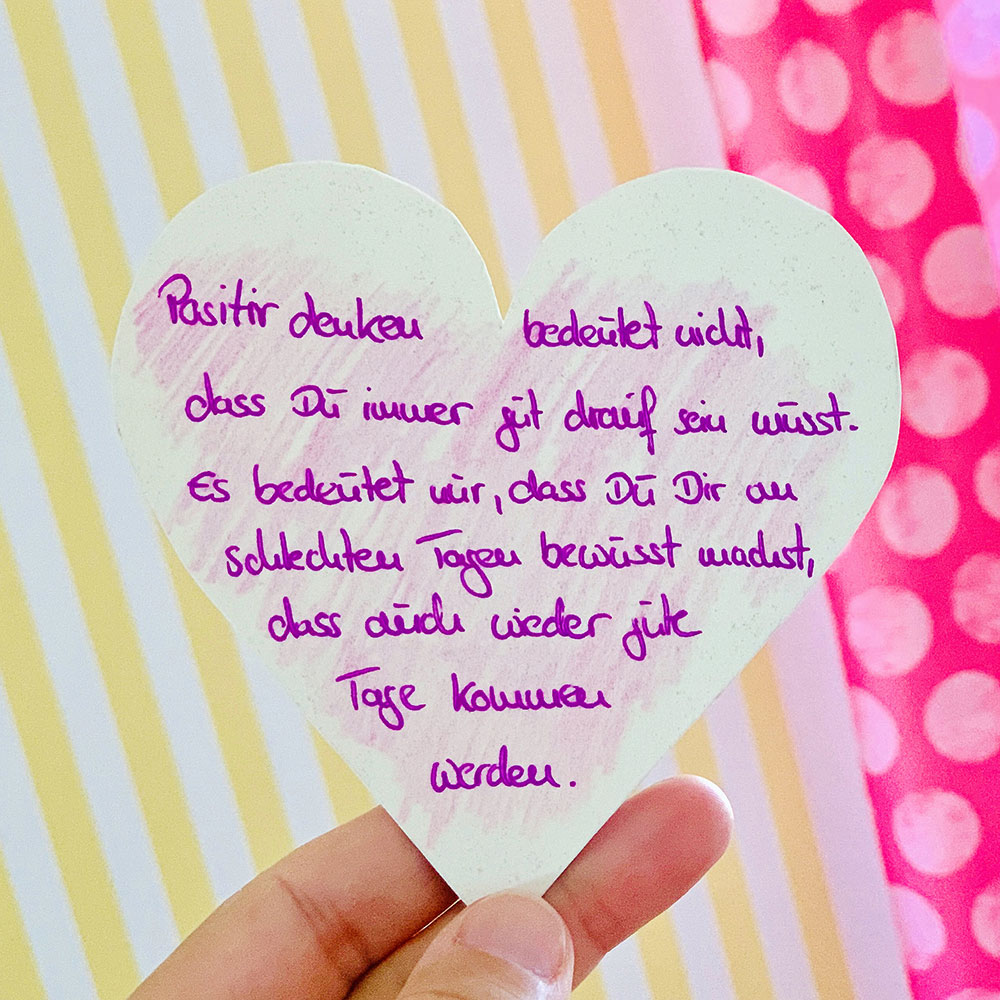 Positiv denken bedeutet nicht,
dass Du immer gut drauf sein musst.
Es bedeutet nur, dass Du Dir an
schlechten Tagen bewusst machst,
dass auch wieder gute
Tage kommen
werden.